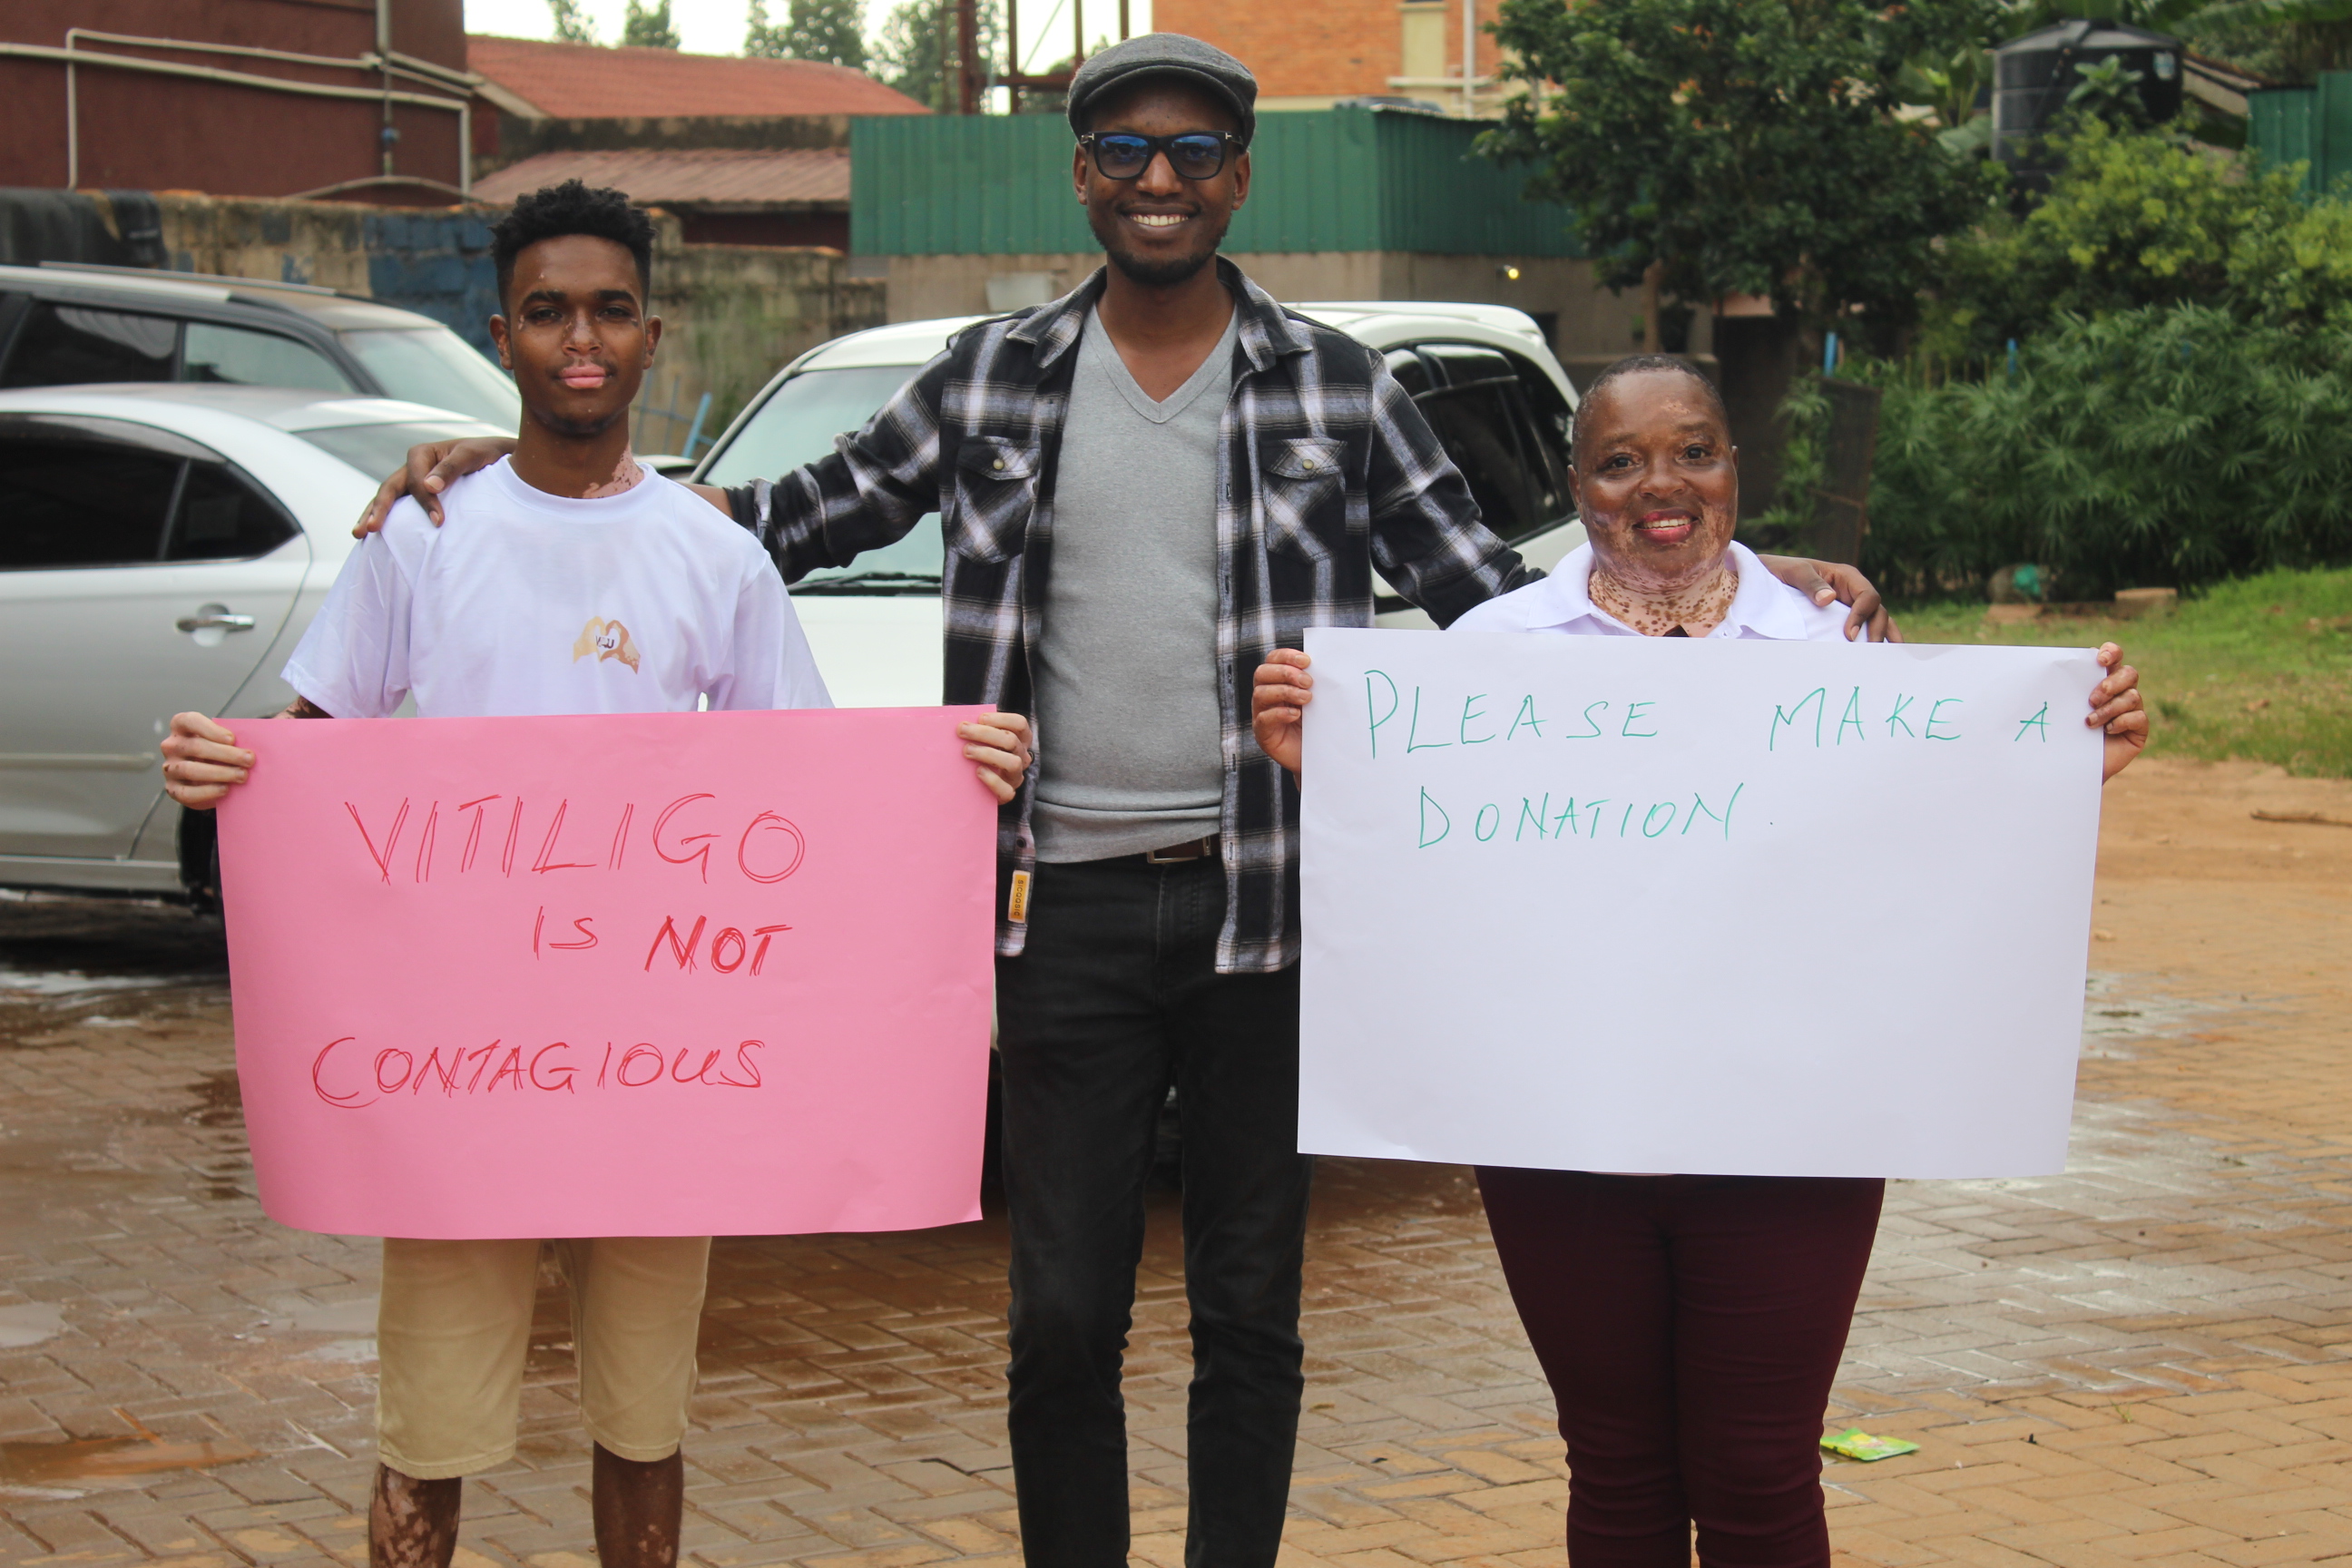 VITILIGO
IS NOT
CONTAGIOUS
PLEASE MAKE A
DONATION.